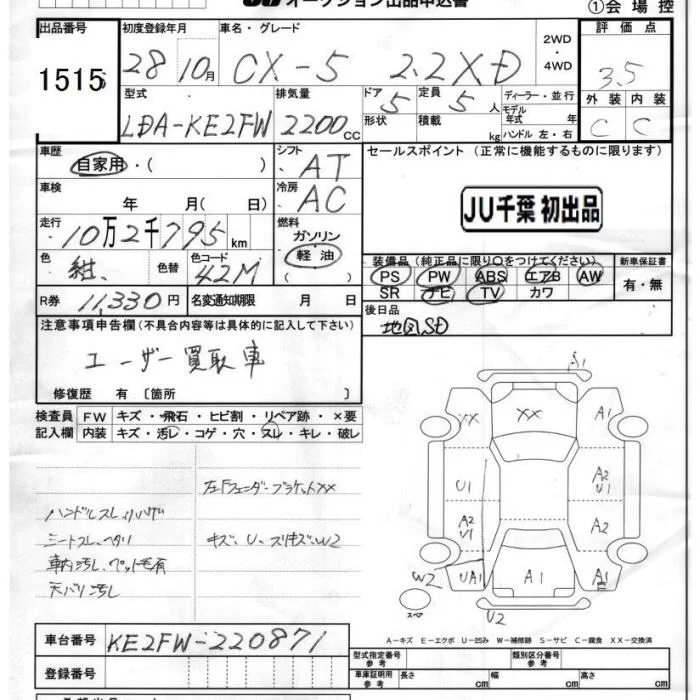 オークション出品申込書
①会場控
出品番号 初度登録年月 車名・グレード 評価点
1515 28 10月 CX-5 2.2XD 2WD・4WD 3.5
型式 排気量 ドア 定員 ディーラー・並行 外装 内装
LDA-KE2FW 2200cc 5 5人 モデル年式 年 C C
形状 積載 kg ハンドル 左・右
車歴 シフト セールスポイント (正常に機能するものに限ります)
自家用・( ) AT
車検 冷房
年 月( 日) AC JU千葉 初出品
走行 燃料
10万2千795km ガソリン
色 色替 色コード 軽油 装備品 (純正品に限り○をつけてください) 新車保証書
紺、 42M ( ) PS PW ABS エアB AW 有・無
SR ナビ TV カワ
R券 11,330円 名変通知期限 月 日 後日品
地図SD
注意事項申告欄 (不具合内容等は具体的に記入して下さい)
ユーザー買取車
修復歴 有 〔箇所 〕
検査員 FW キズ・飛石・ヒビ割・リペア跡・×要
記入欄 内装 キズ・汚レ・コゲ・穴・スレ・キレ・破レ
左下フェンダーブラケットXX
ハンドルスレ
シートスレ、ヘタリ
キズ、U、スリキズ、W2
車内汚レ、ペット毛有
天バリ汚レ
A1
XX XX A1
U1 A2 U1
A2 U1 A2
W2 UA1 A1 A E
U2
スペア
A-キズ E-エクボ U-凹み W-補修跡 S-サビ C-腐食 XX-交換済
車台番号 KE2FW-220871
登録番号
型式指定番号 参考 類別区分番号 参考
車庫証明用 参考 長さ cm 幅 cm 高さ cm